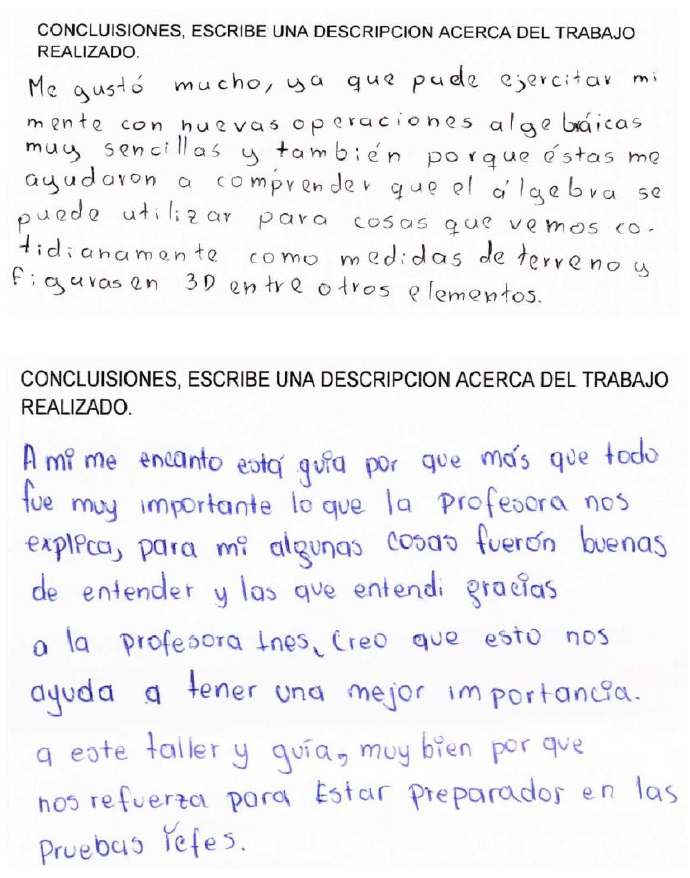 CONCLUISIONES, ESCRIBE UNA DESCRIPCION ACERCA DEL TRABAJO
REALIZADO.
Me gustó mucho, ya que pude ejercitar mi
mente con nuevas operaciones algebráicas
muy sencillas y también porque éstas me
ayudaron a comprender que el álgebra se
puede utilizar para cosas que vemos co-
tidianamente como medidas de terreno y
figuras en 3D entre otros elementos.
CONCLUISIONES, ESCRIBE UNA DESCRIPCION ACERCA DEL TRABAJO
REALIZADO.
A mi me encanto está guia por que más que todo
fue muy importante lo que la profesora nos
explica, para mi algunas cosas fuerón buenas
de entender y las que entendi gracias
a la profesora Ines, Creo que esto nos
ayuda a tener una mejor importancia.
a este taller y guía, muy bien por que
nos refuerza para Estar preparados en las
Pruebas Icfes.